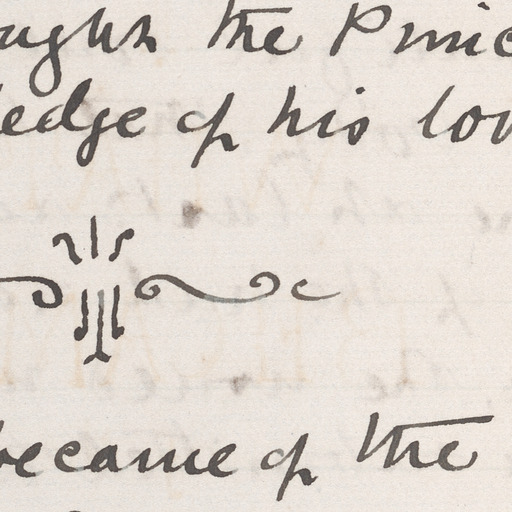 the Princ
ledge of his lov
became of the